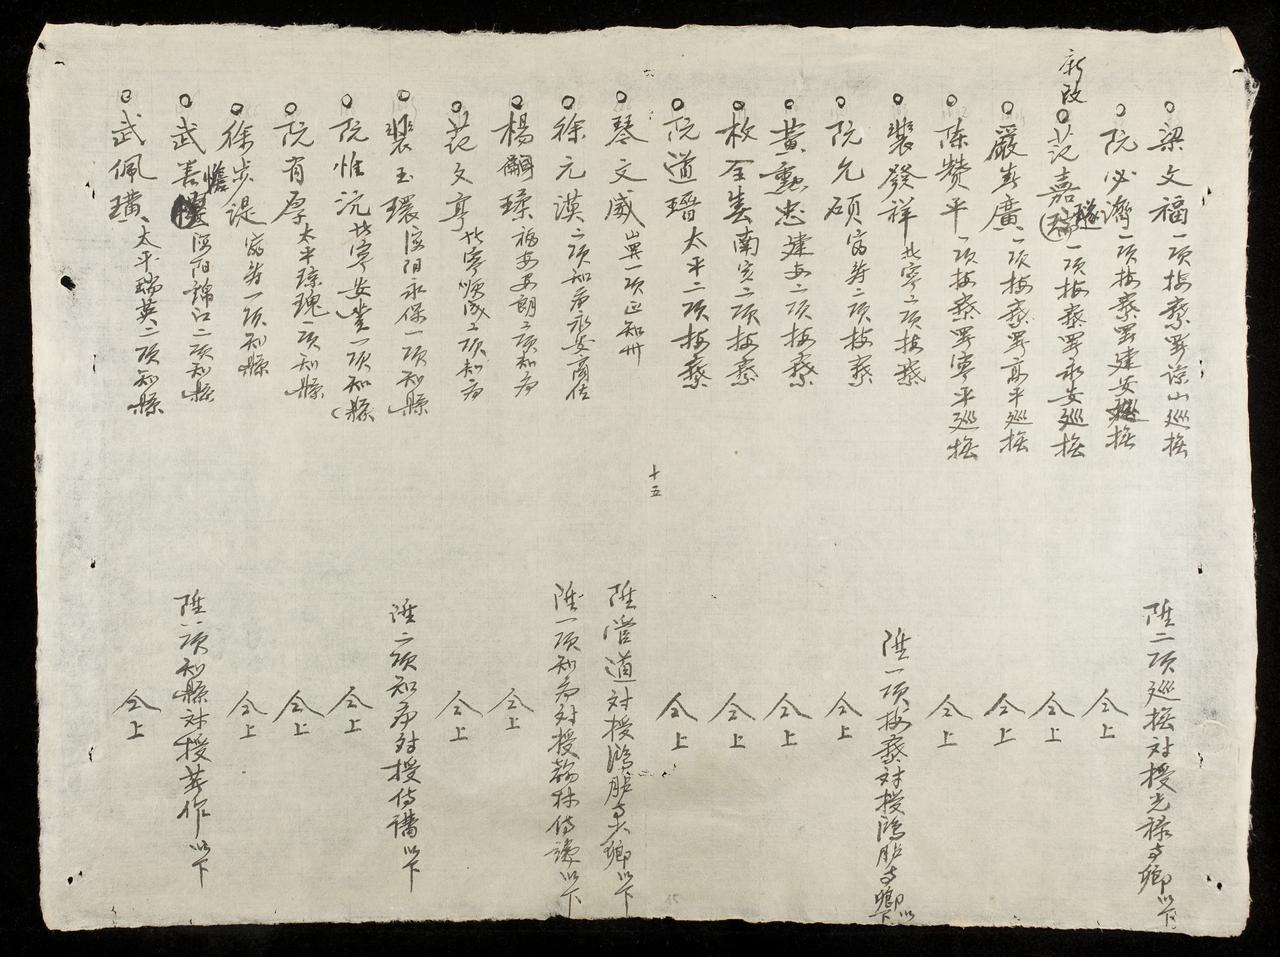 梁文福 一項按察署諒山巡撫 陞二項巡撫対授光祿寺卿以下
阮必濟 一項按察署建安巡撫 仝上
新改
范嘉璲 一項按察署永安巡撫 仝上
嚴春廣 一項按察署高平巡撫 仝上
陳贊平 一項按察署寧平巡撫 仝上
裴發祥 北寧二項按察 陞一項按察対授鴻胪寺卿以下
阮允碩 富壽二項按察 仝上
黃勳忠 建安二項按察 仝上
枚全春 南定二項按察 仝上
阮道瑨 太平二項按察 仝上
琴文威 山羅一項正知州 陞管道対授鴻胪寺少卿以下
十五
徐元漠 二項知府永安商佐 陞一項知府対授翰林侍讀以下
楊嗣瑈 福安安朗二項知府 仝上
范文亨 北寧順成二項知府 仝上
裴玉環 海陽永保一項知縣 陞二項知府対授侍講以下
阮惟沆 北寧安豊一項知縣 仝上
阮有厚 太平瓊瑰一項知縣 仝上
徐步湜 富壽一項知縣 仝上
武善憺 海陽錦江二項知縣 陞一項知縣対授著作以下
武佩璜 太平瑞英二項知縣 仝上